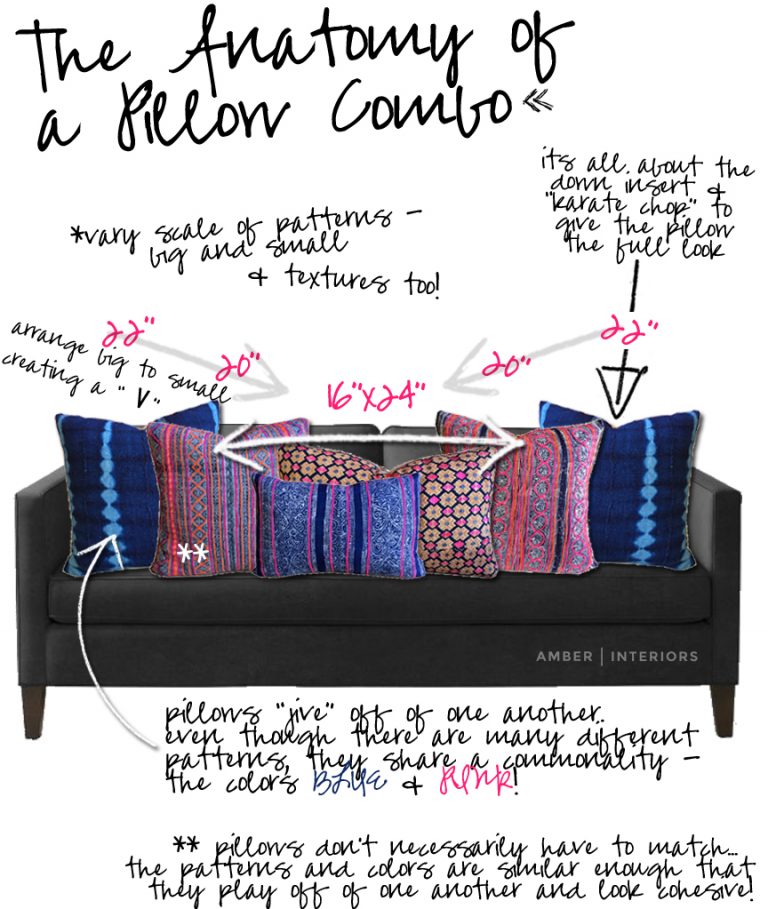 The Anatomy of
a Pillow Combo «
its all about the
down insert &
"karate chop" to
give the pillow
the full look
*vary scale of patterns -
big and small
& textures too!
22"
22"
arrange big to small
creating a "V"
20"
20"
16"X24"
**
AMBER | INTERIORS
pillows "jive" off of one another..
even though there are many different
patterns, they share a commonality -
the colors BLUE & PINK!
** pillows don't necessarily have to match...
the patterns and colors are similar enough that
they play off of one another and look cohesive!